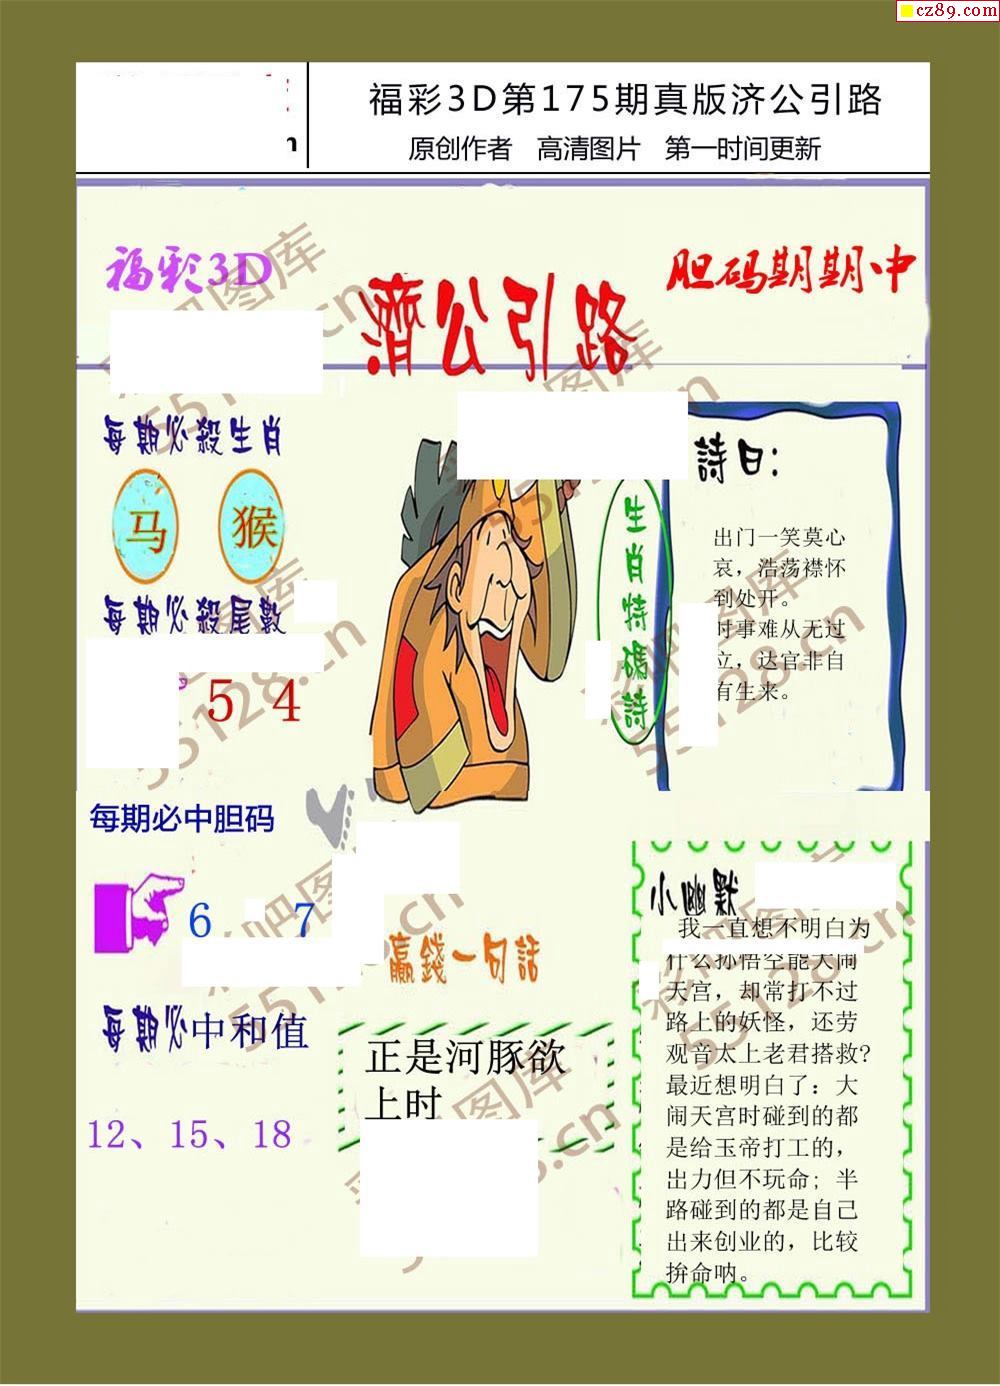 cz89.com
福彩3D第175期真版济公引路
原创作者 高清图片 第一时间更新
福彩3D
濟公引路
胆码期期中
每期必殺生肖
马 猴
每期必殺尾數
5 4
每期必中胆码
6 7
每期必中和值
12、15、18
生肖特碼詩
詩曰:
出门一笑莫心
哀，浩荡襟怀
到处开。
时事难从无过
立，达官非自
有生来。
赢錢一句話
正是河豚欲
上时
小幽默
我一直想不明白为
什么孙悟空能大闹
天宫，却常打不过
路上的妖怪，还劳
观音太上老君搭救?
最近想明白了: 大
闹天宫时碰到的都
是给玉帝打工的，
出力但不玩命; 半
路碰到的都是自己
出来创业的，比较
拚命呐。
彩吧图库
55128.cn